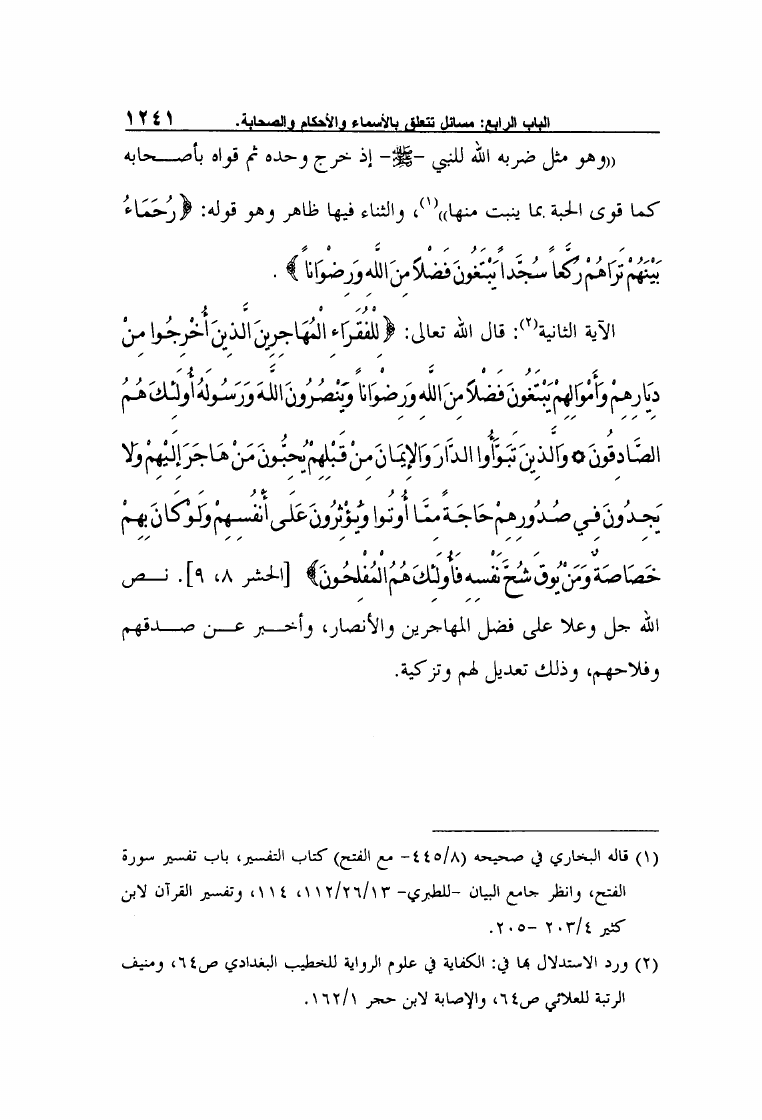 الباب الرابع: مسائل تتعلق بالأسماء والأحكام والصحابة. ١٢٤١
((وهو مثل ضربه الله للنبي -ﷺ- إذ خرج وحده ثم قواه بأصــحابه
كما قوى الحبة بما ينبت منها))(١)، والثناء فيها ظاهر وهو قوله: ﴿رُحَمَاءُ
بَيْنَهُمْ تَرَاهُمْ رُكَّعاً سُجَّداً يَبْتَغُونَ فَضْلاً مِنَ اللَّهِ وَرِضْوَاناً﴾ .
الآية الثانية(٢): قال الله تعالى: ﴿لِلْفُقَرَاءِ الْمُهَاجِرِينَ الَّذِينَ أُخْرِجُوا مِنْ
دِيَارِهِمْ وَأَمْوَالِهِمْ يَبْتَغُونَ فَضْلاً مِنَ اللَّهِ وَرِضْوَاناً وَيَنْصُرُونَ اللَّهَ وَرَسُولَهُ أُولَئِكَ هُمُ
الصَّادِقُونَ ۞ وَالَّذِينَ تَبَوَّأُوا الدَّارَ وَالإِيمَانَ مِنْ قَبْلِهِمْ يُحِبُّونَ مَنْ هَاجَرَ إِلَيْهِمْ وَلا
يَجِدُونَ فِي صُدُورِهِمْ حَاجَةً مِمَّا أُوتُوا وَيُؤْثِرُونَ عَلَى أَنْفُسِهِمْ وَلَوْ كَانَ بِهِمْ
خَصَاصَةٌ وَمَنْ يُوقَ شُحَّ نَفْسِهِ فَأُولَئِكَ هُمُ الْمُفْلِحُونَ﴾ [الحشر ٨، ٩]. نــص
الله جل وعلا على فضل المهاجرين والأنصار، وأخــبر عــن صــدقهم
وفلاحهم، وذلك تعديل لهم وتزكية.
(١) قاله البخاري في صحيحه (٤٤٥/٨- مع الفتح) كتاب التفسير، باب تفسير سورة
الفتح، وانظر جامع البيان -للطبري- ١١٢/٢٦/١٣، ١١٤، وتفسير القرآن لابن
كثير ٢٠٣/٤ -٢٠٥.
(٢) ورد الاستدلال بها في: الكفاية في علوم الرواية للخطيب البغدادي ص٦٤، ومنيف
الرتبة للعلائي ص٦٤، والإصابة لابن حجر ١٦٢/١.